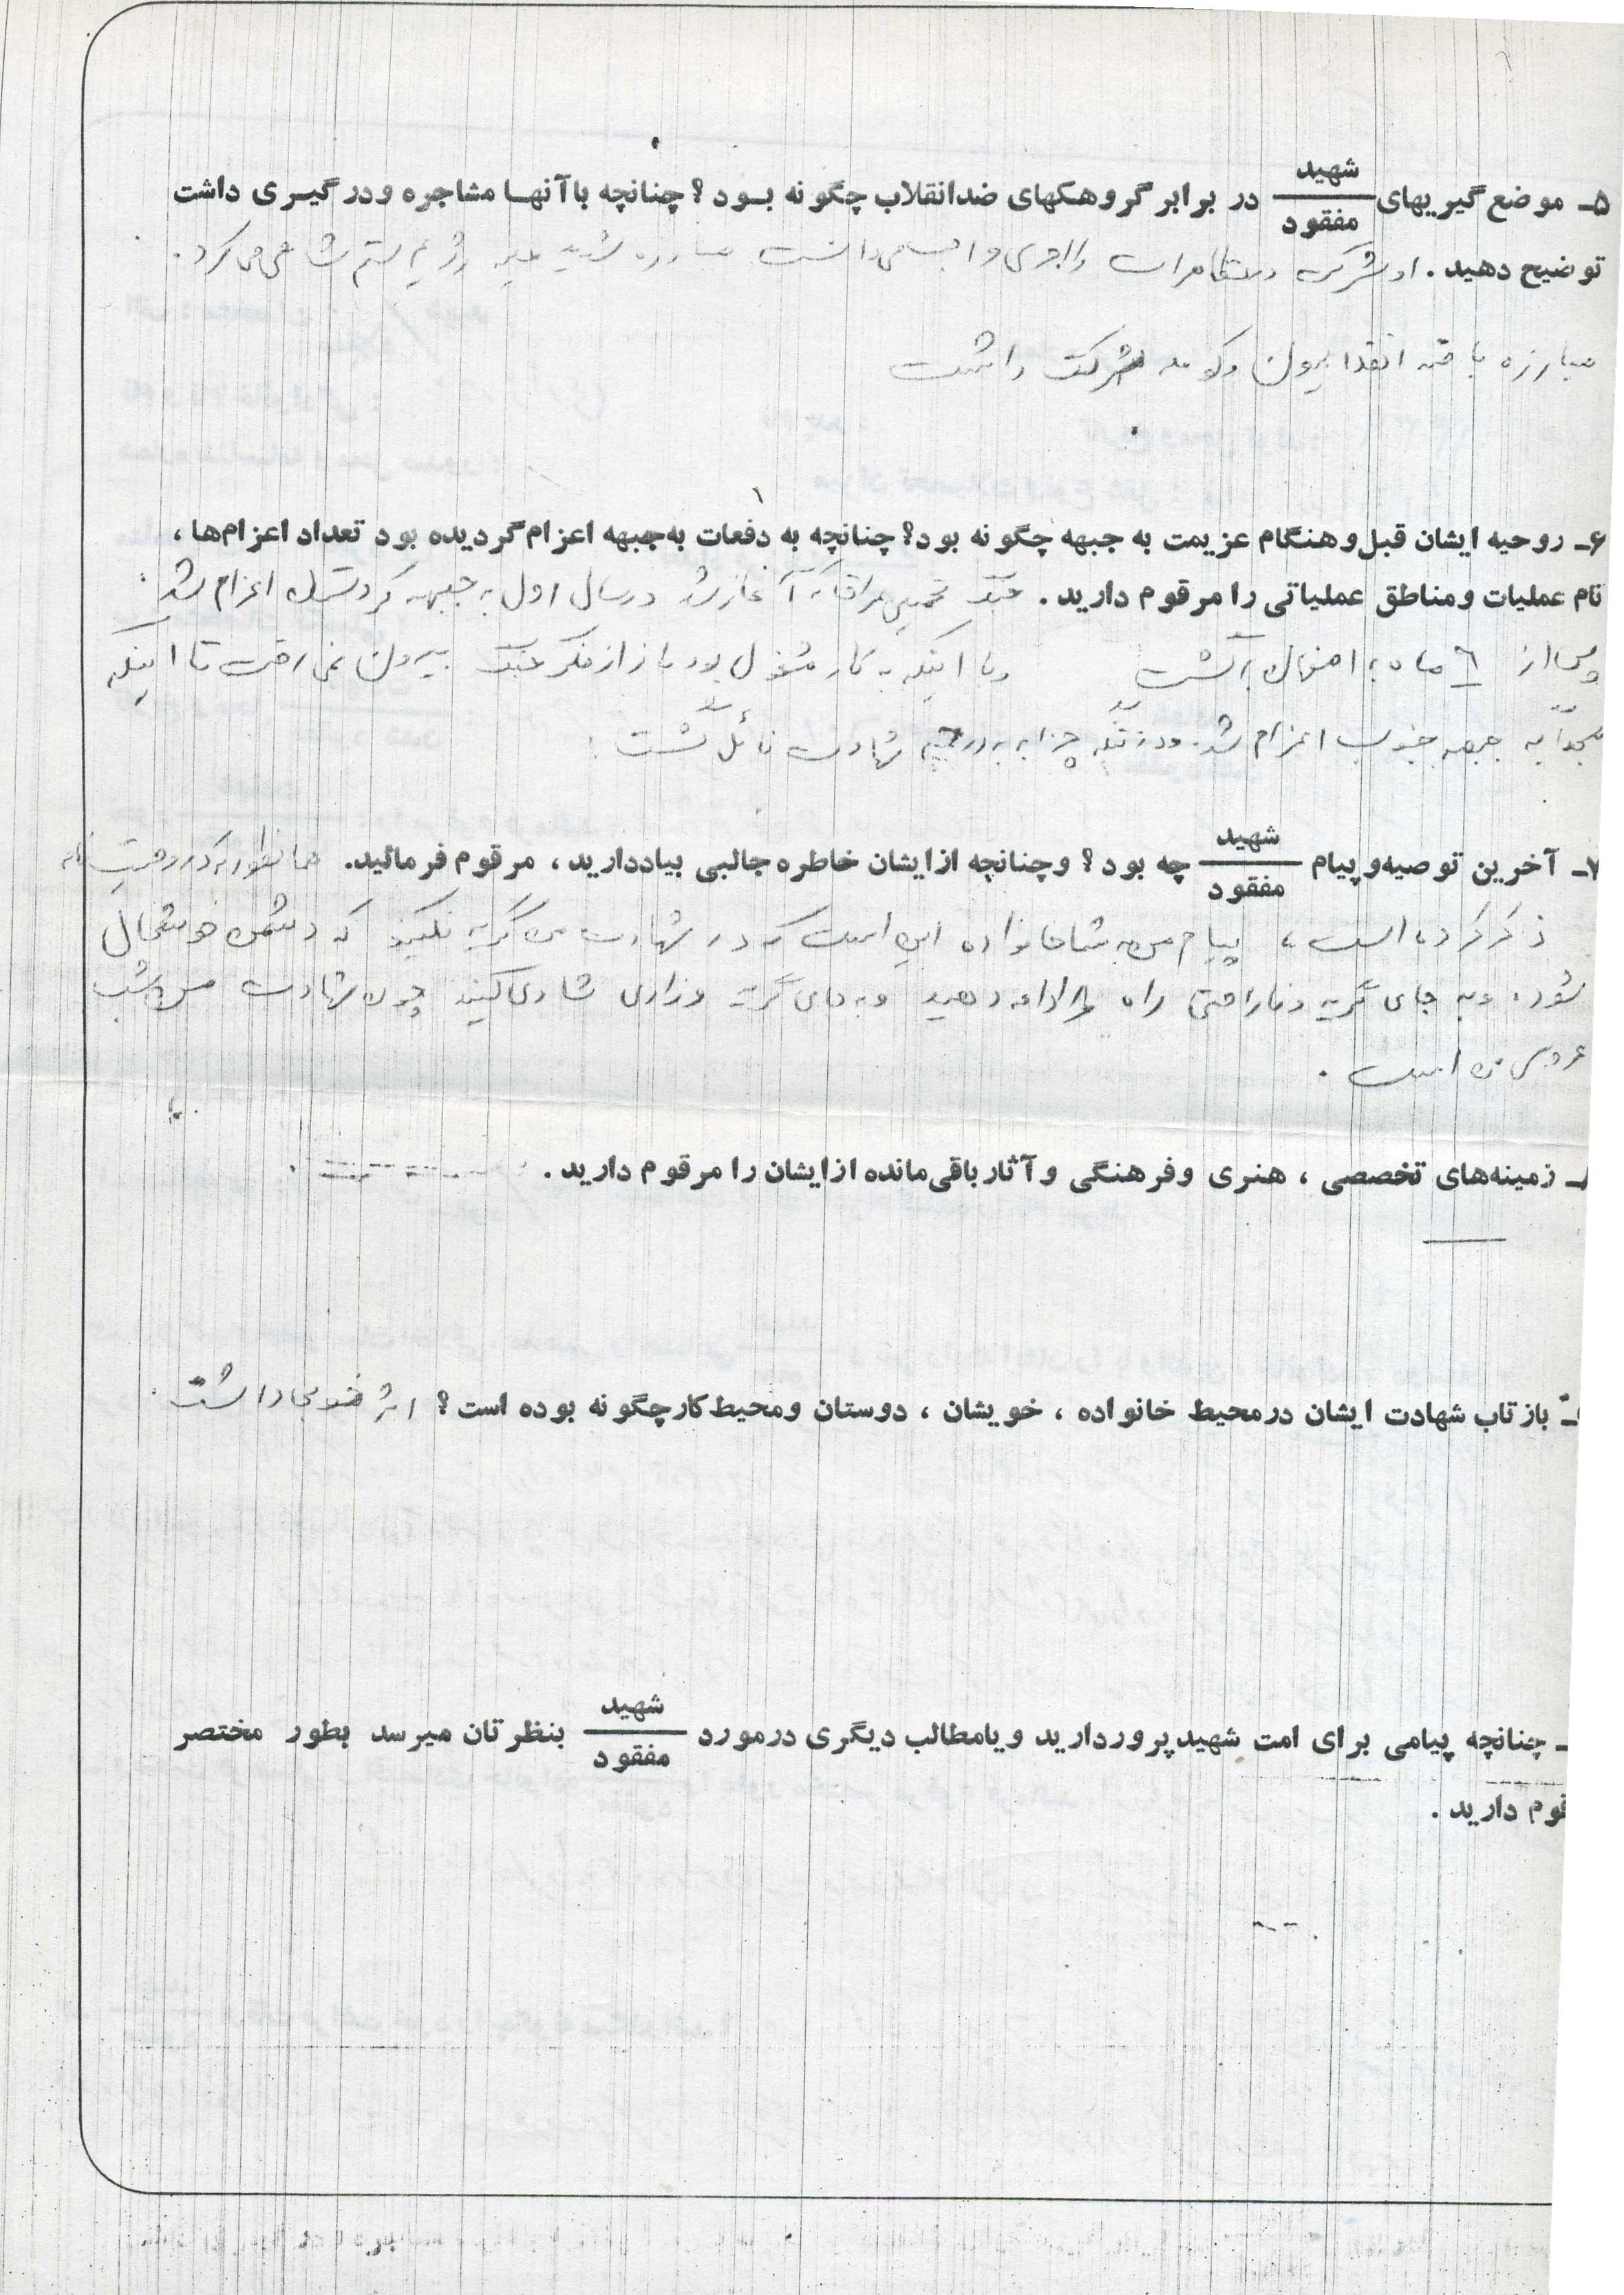 ۵ـ موضع‌گیریهای شهید / مفقود در برابر گروهکهای ضدانقلاب چگونه بود؟ چنانچه با آنها مشاجره و درگیری داشت
توضیح دهید. او شرکت در تظاهرات را امری واجب می‌دانست مبارزه شدید علیه رژیم ستم شاهی می‌کرد.
مبارزه با ضد انقلابیون و کومله شرکت داشت
۶ـ روحیه ایشان قبل و هنگام عزیمت به جبهه چگونه بود؟ چنانچه به دفعات به جبهه اعزام گردیده بود تعداد اعزام‌ها،
نام عملیات و مناطق عملیاتی را مرقوم دارید. جنگ تحمیلی عراق که آغاز شد در سال اول به جبهه کردستان اعزام شد
پس از ٦ ماه به اصفهان برگشت و با اینکه به کار مشغول بود باز از فکر جنگ بیرون نمی رفت تا اینکه
مجدداً به جبهه جنوب اعزام شد. و در تنگه چزابه به درجه شهادت نائل گشت
۷ـ آخرین توصیه و پیام شهید / مفقود چه بود؟ و چنانچه از ایشان خاطره جالبی بیاد دارید، مرقوم فرمائید. همانطور که در وصیت نامه
ذکر کرده است، پیام من به شما خانواده این است که در شهادت من گریه نکنید که دشمن خوشحال
شود. و به جای گریه و ناراحتی راه مرا ادامه دهید و به جای گریه و زاری شادی کنید چون شهادت من شب
عروسی من است.
ـ زمینه‌های تخصصی، هنری و فرهنگی و آثار باقی‌مانده از ایشان را مرقوم دارید.
ـ بازتاب شهادت ایشان در محیط خانواده، خویشان، دوستان و محیط کار چگونه بوده است؟ اثر خوبی داشت
ـ چنانچه پیامی برای امت شهیدپرور دارید و یا مطالب دیگری در مورد شهید / مفقود بنظرتان میرسد بطور مختصر
قوم دارید.